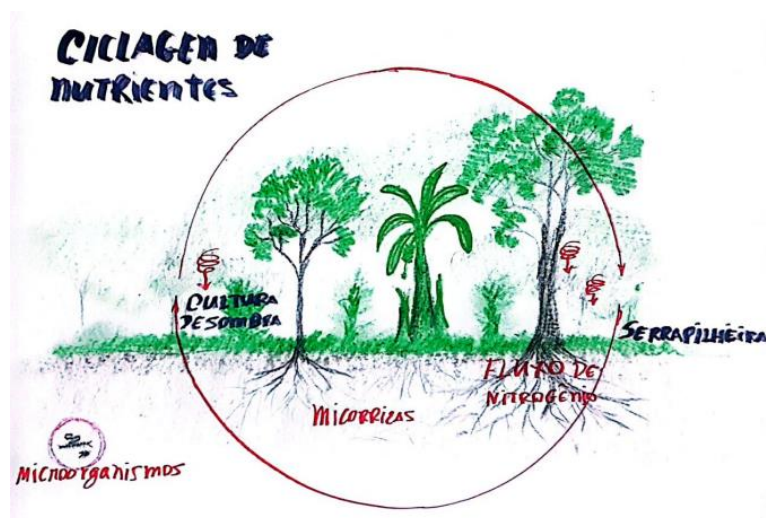 CICLAGEM DE
NUTRIENTES
CULTURA
DE SOMBRA
SERRAPILHEIRA
FLUXO DE
NITROGÊNIO
MICORRIZAS
MICROORGANISMOS